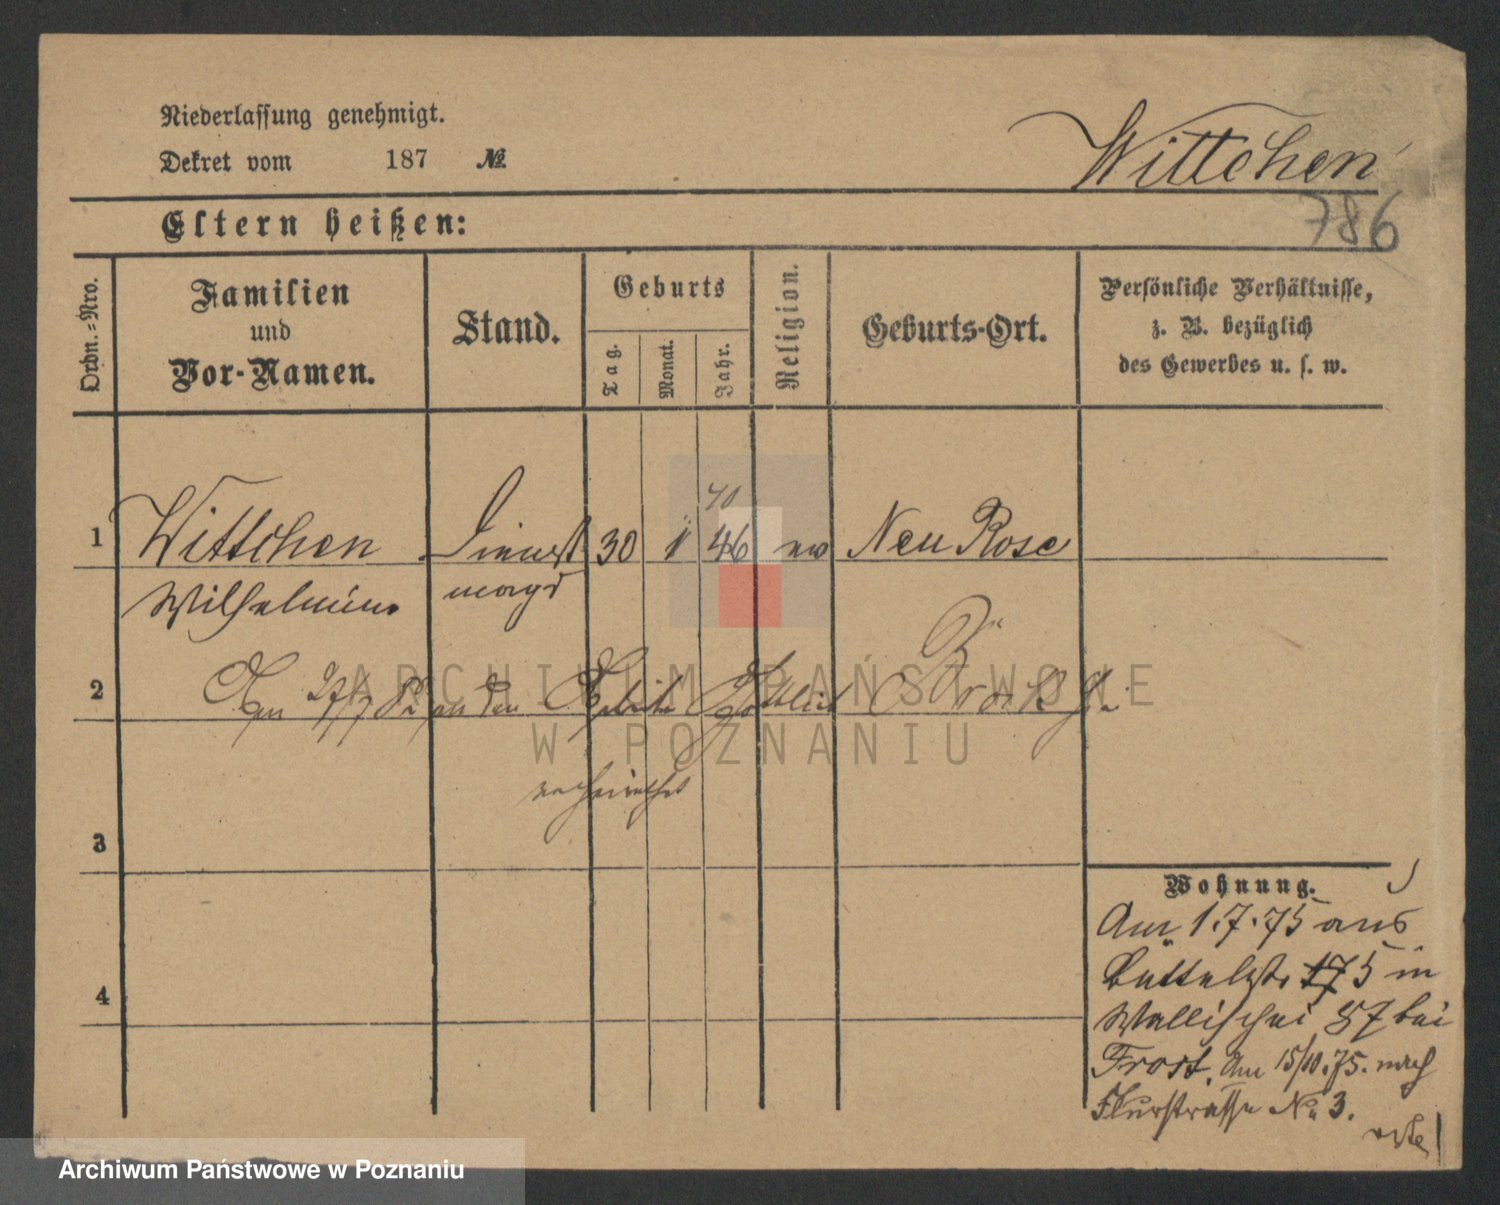 Niederlassung genehmigt.
Dekret vom 187 №
Wittchen
786
Eltern heißen:
Ordn.-Nro.
Familien und Vor-Namen.
Stand.
Geburts
Tag.
Monat.
Jahr.
Religion.
Geburts-Ort.
Persönliche Verhältnisse,
z. B. bezüglich
des Gewerbes u. s. w.
40
1 Wittchen Dienst 30 46 ev Neu Rose
Wilhelmine magd
2
Am 27/7 an den Gottlieb
verheirathet
3
4
Wohnung.
Am 1.7.75 aus
Büttelstr. 5 in
Wallischei 57 bei
Frost. Am 15/10.75. nach
Flurstrasse No 3.
ARCHIWUM PAŃSTWOWE
W POZNANIU
Archiwum Państwowe w Poznaniu